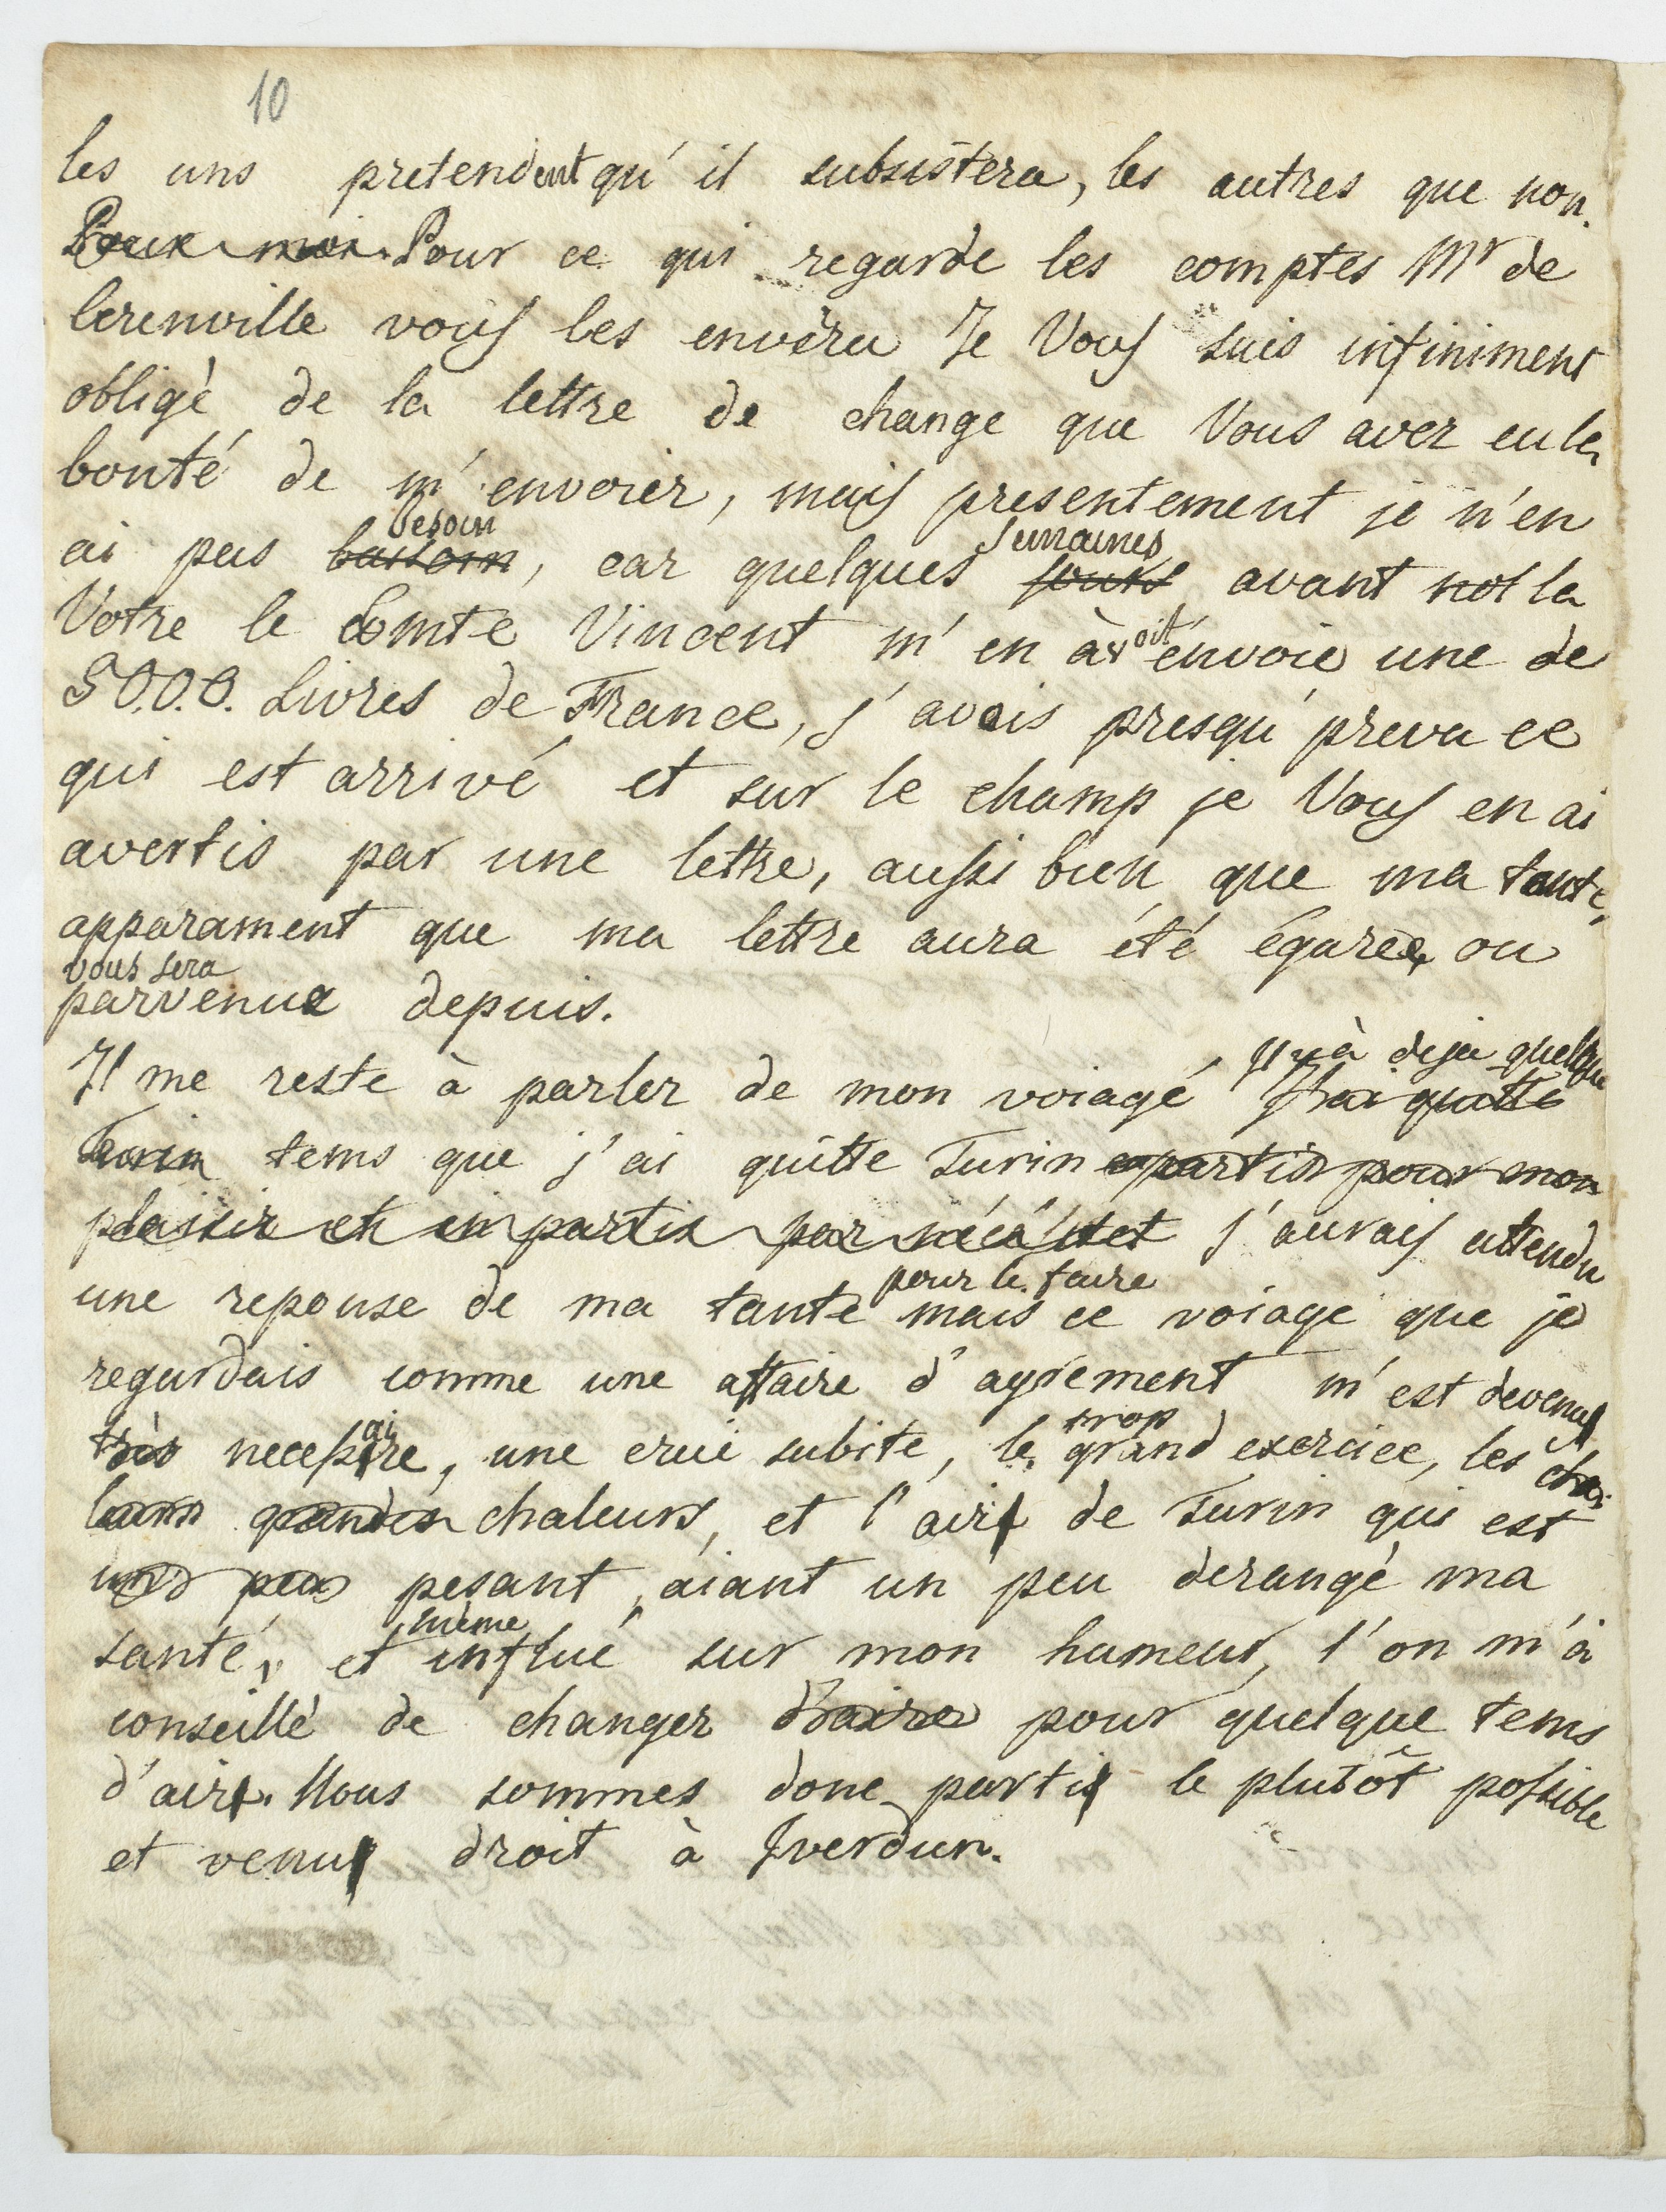 10
les uns pretendent qu' il subsistera, les autres que non.
Pour moi. Pour ce qui regarde les comptes Mr de
lerenville vous les envèra Je Vous suis infiniment
obligé de la lettre de change que Vous avez eu la
bonté de m' envoier, mais presentement je n'en
besoin semaines
ai pas baisoin, car quelques jours avant not la
Votre le Comte Vincent m' en àvoit envoie une de
5000. Livres de France, j' avois presqu' prevu ce
qui est arrivé et sur le champ je Vous en ai
avertis par une lettre, aussi bien que ma tante,
apparament que ma lettre aura été égarée, ou
vous sera
parvenue depuis.
Il y à deja quelque
Il me reste à parler de mon voiagé, J'ai quitté
Turin tems que j'ai quitte Turin en partie pour mon
plaisir et en partie par nécéssitet j'aurais attendu
pour le faire
une reponse de ma tante mais ce voiage que je
regardais comme une affaire d' agrement m' est devenu
trop
très necessaire, une crue subite, le grand exercice, les cha
leurs grandes chaleurs, et l' air de Turin qui est
und peu pesant, aiant un peu derangé ma
même
santé, et influé sur mon humeur, l'on m'à
conseillé de changer d'aire pour quelque tems
d'air. Nous sommes donc parti le plutôt possible
et venu droit à Iverdun.